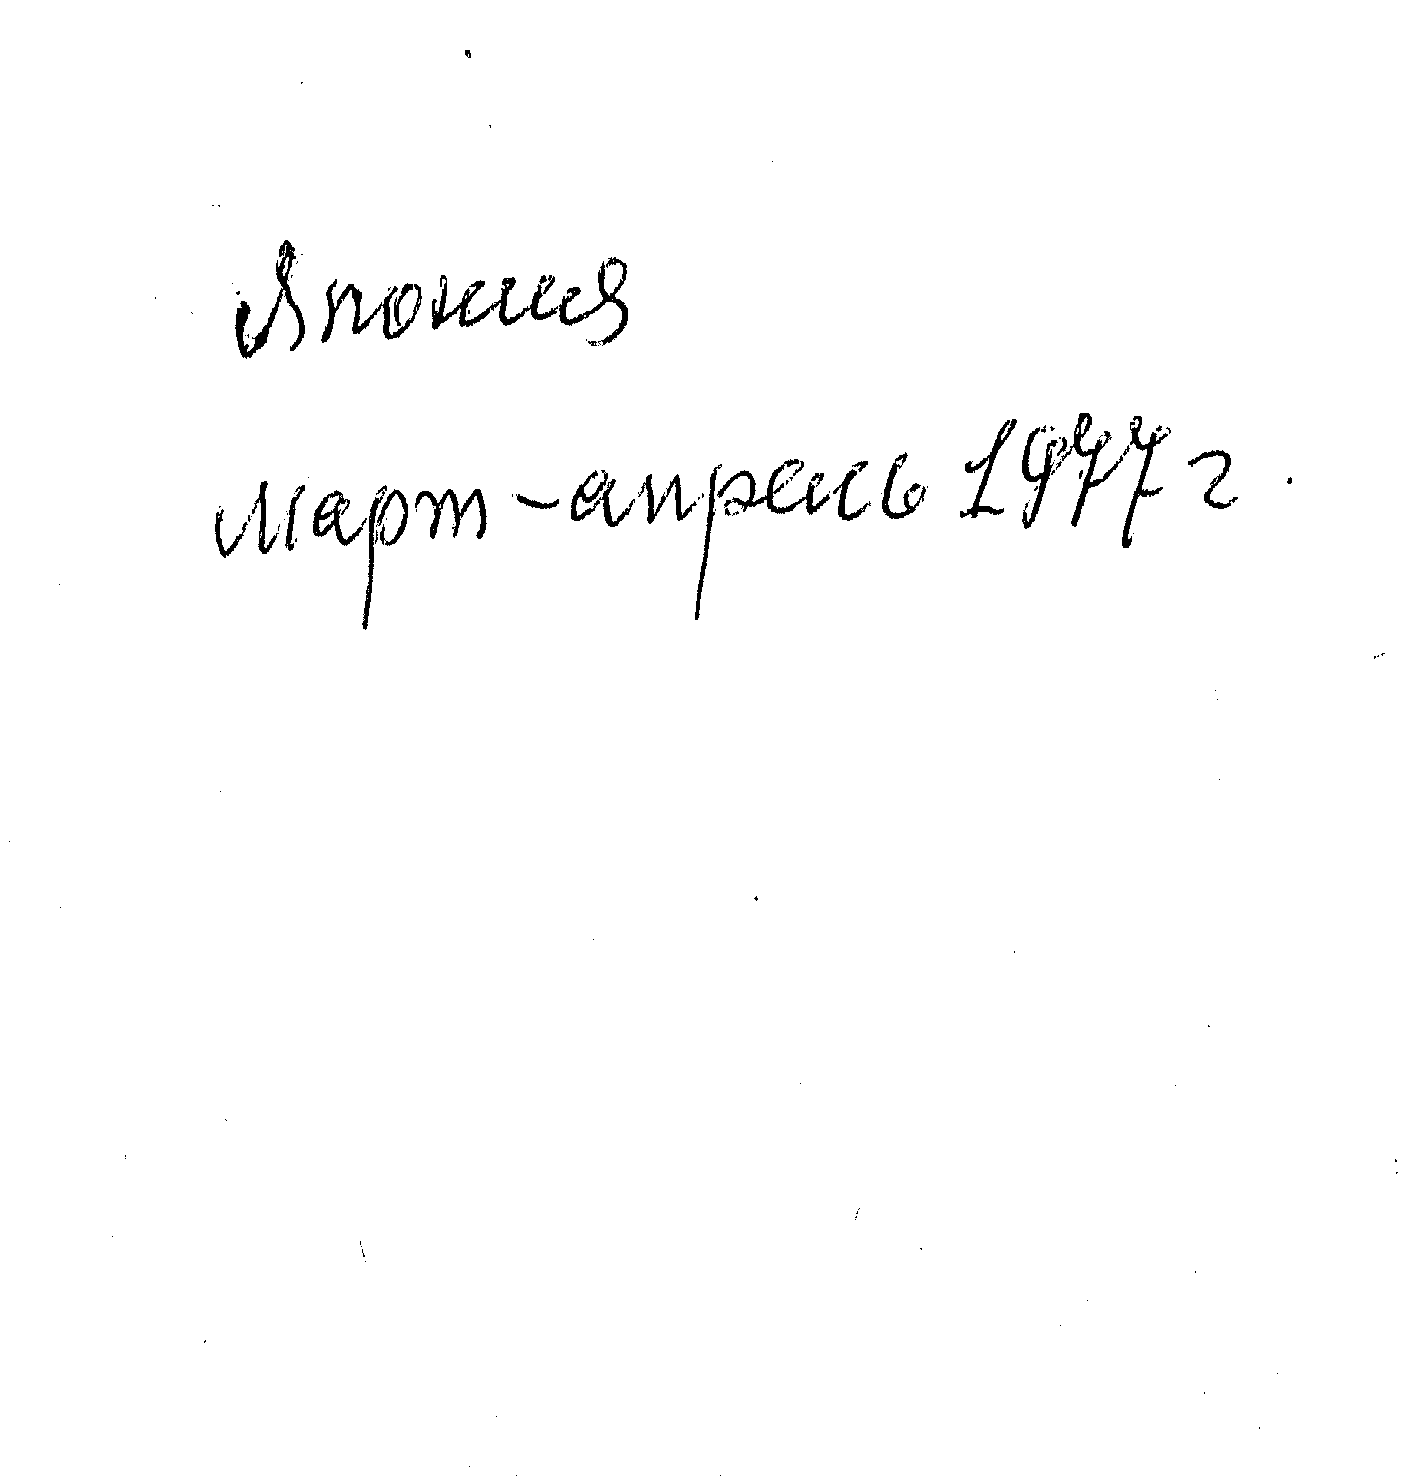 Япония
март-апрель 1977 г.